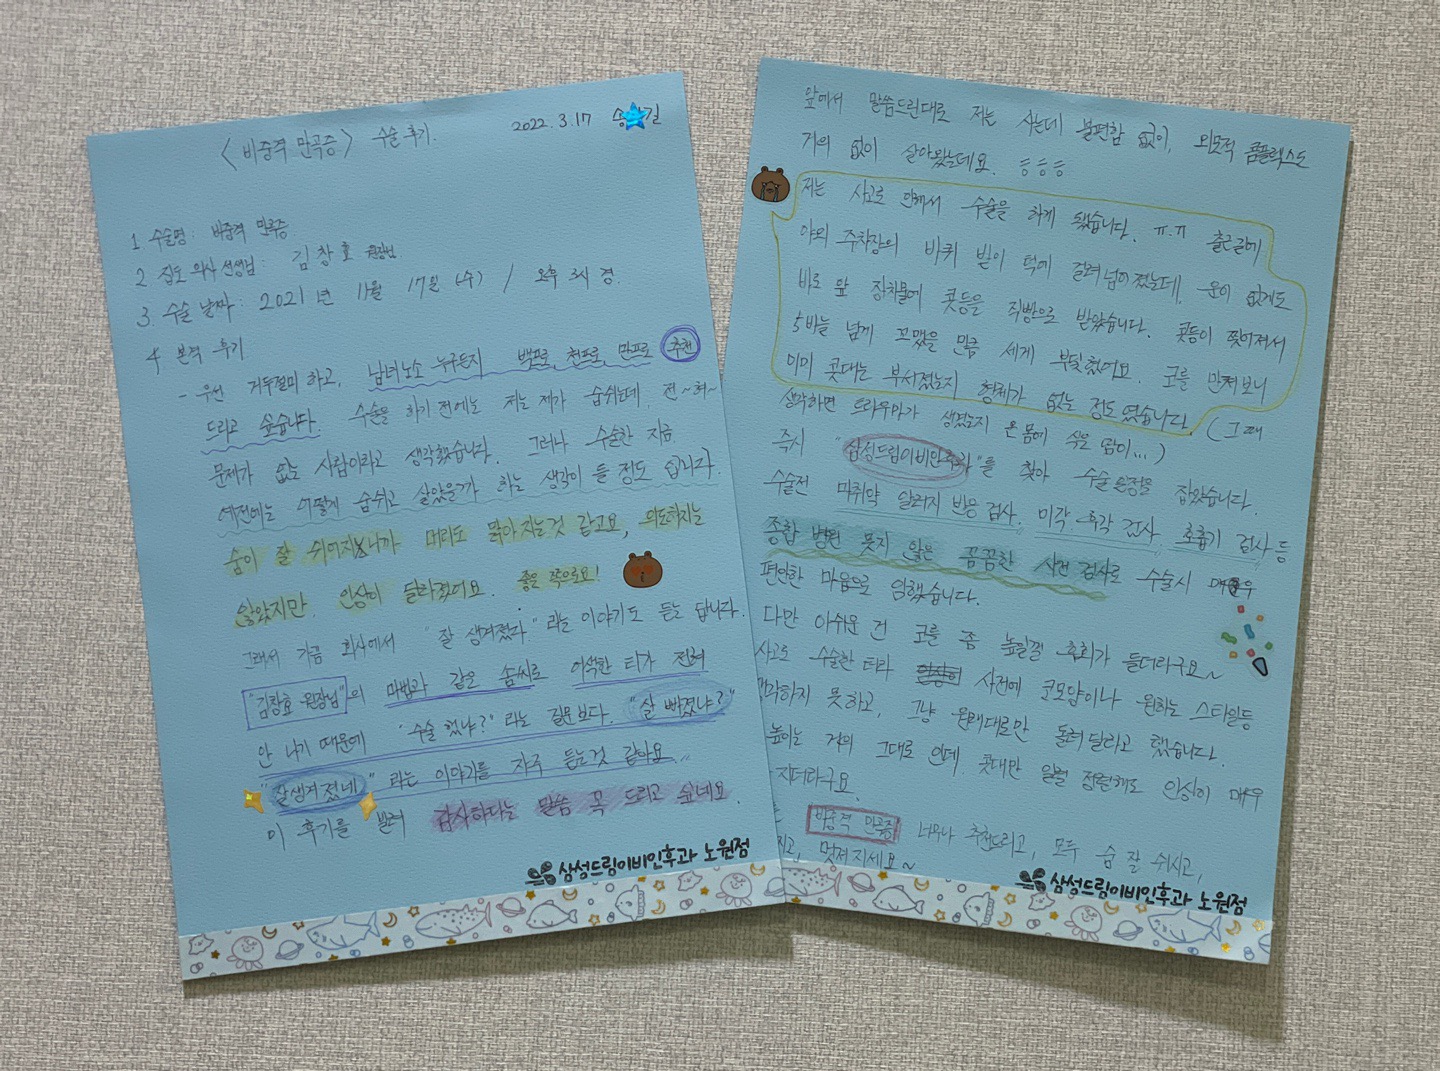 <비중격 만곡증> 수술 후기.
2022. 3. 17 송 길
1 수술명 : 비중격 만곡증
2 집도 의사 선생님 : 김창호 원장님
3. 수술 날짜 : 2021년 11월 17일 (수) / 오후 3시 경.
4 본격 후기
- 우선 거두절미 하고, 남녀노소 누구든지 백프로, 천프로, 만프로 추천
드리고 싶습니다. 수술을 하기 전에는 저는 제가 숨쉬는데 전~혀~
문제가 없는 사람이라고 생각했습니다. 그러나 수술한 지금
예전에는 어떻게 숨쉬고 살았을까 하는 생각이 들 정도 입니다.
숨이 잘 쉬어지니까 머리도 맑아지는것 같고요, 의도하지는
않았지만 인상이 달라졌어요. 좋은 쪽으로요!
그래서 가끔 회사에서 "잘 생겨졌다" 라는 이야기도 듣는 답니다.
"김창호 원장님"의 마법과 같은 솜씨로 어색한 티가 전혀
안 나기 때문에 "수술 했냐?" 라는 질문보다. "살 빠졌냐?"
"잘생겨 졌네" 라는 이야기를 자주 듣는것 같아요.
이 후기를 빌려 감사하다는 말씀 꼭 드리고 싶네요.
삼성드림이비인후과 노원점
앞에서 말씀드린대로 저는 사는데 불편함 없이, 외모적 콤플렉스도
거의 없이 살아왔는데요. ㅎㅎㅎ
저는 사고로 인해서 수술을 하게 됐습니다. ㅠ.ㅠ 출근길에
야외 주차장의 바퀴 받이 턱에 걸려 넘어졌는데, 운이 없게도
바로 앞 장치물에 콧등을 직빵으로 받았습니다. 콧등이 찢어져서
5바늘 넘게 꼬맸을 만큼 세게 부딪혔어요. 코를 만져보니
이미 콧대는 부서졌는지 형체가 없는 정도였습니다. (그때
생각하면 트라우마가 생겼는지 온 몸에 식은 땀이...)
즉시 "삼성드림이비인후과"를 찾아 수술 일정을 잡았습니다.
수술전 마취약 알러지 반응 검사, 미각 후각 검사, 호흡기 검사 등
종합 병원 못지 않은 꼼꼼한 사전 검사로 수술시 매우
편안한 마음으로 임했습니다.
다만 아쉬운 건 코를 좀 높일걸 후회가 들더라구요~
사고로 수술한 터라 사전에 코모양이나 원하는 스타일등
하지 못하고, 그냥 원래대로만 돌려달라고 했습니다.
높이는 거의 그대로 인데 콧대만 일렬 정렬해도 인상이 매우
지더라구요.
비중격 만곡증 너무나 추천드리고, 모두 숨 잘 쉬시고,
지고, 멋져지세요~
삼성드림이비인후과 노원점